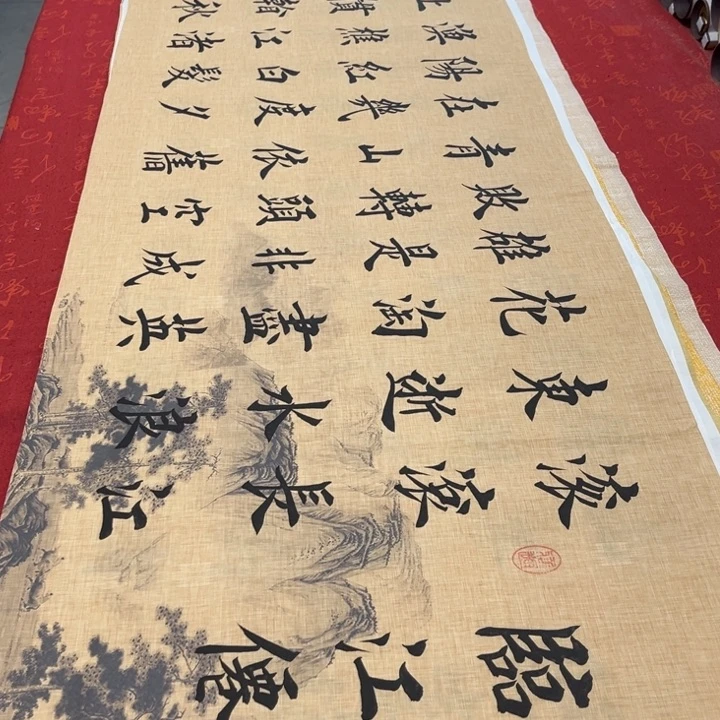 臨江僊
滚滚長江
東逝水浪
花淘盡英
雄是非成
敗轉頭空
青山依舊
在幾度夕
陽紅白髮
漁樵江渚
上慣秋